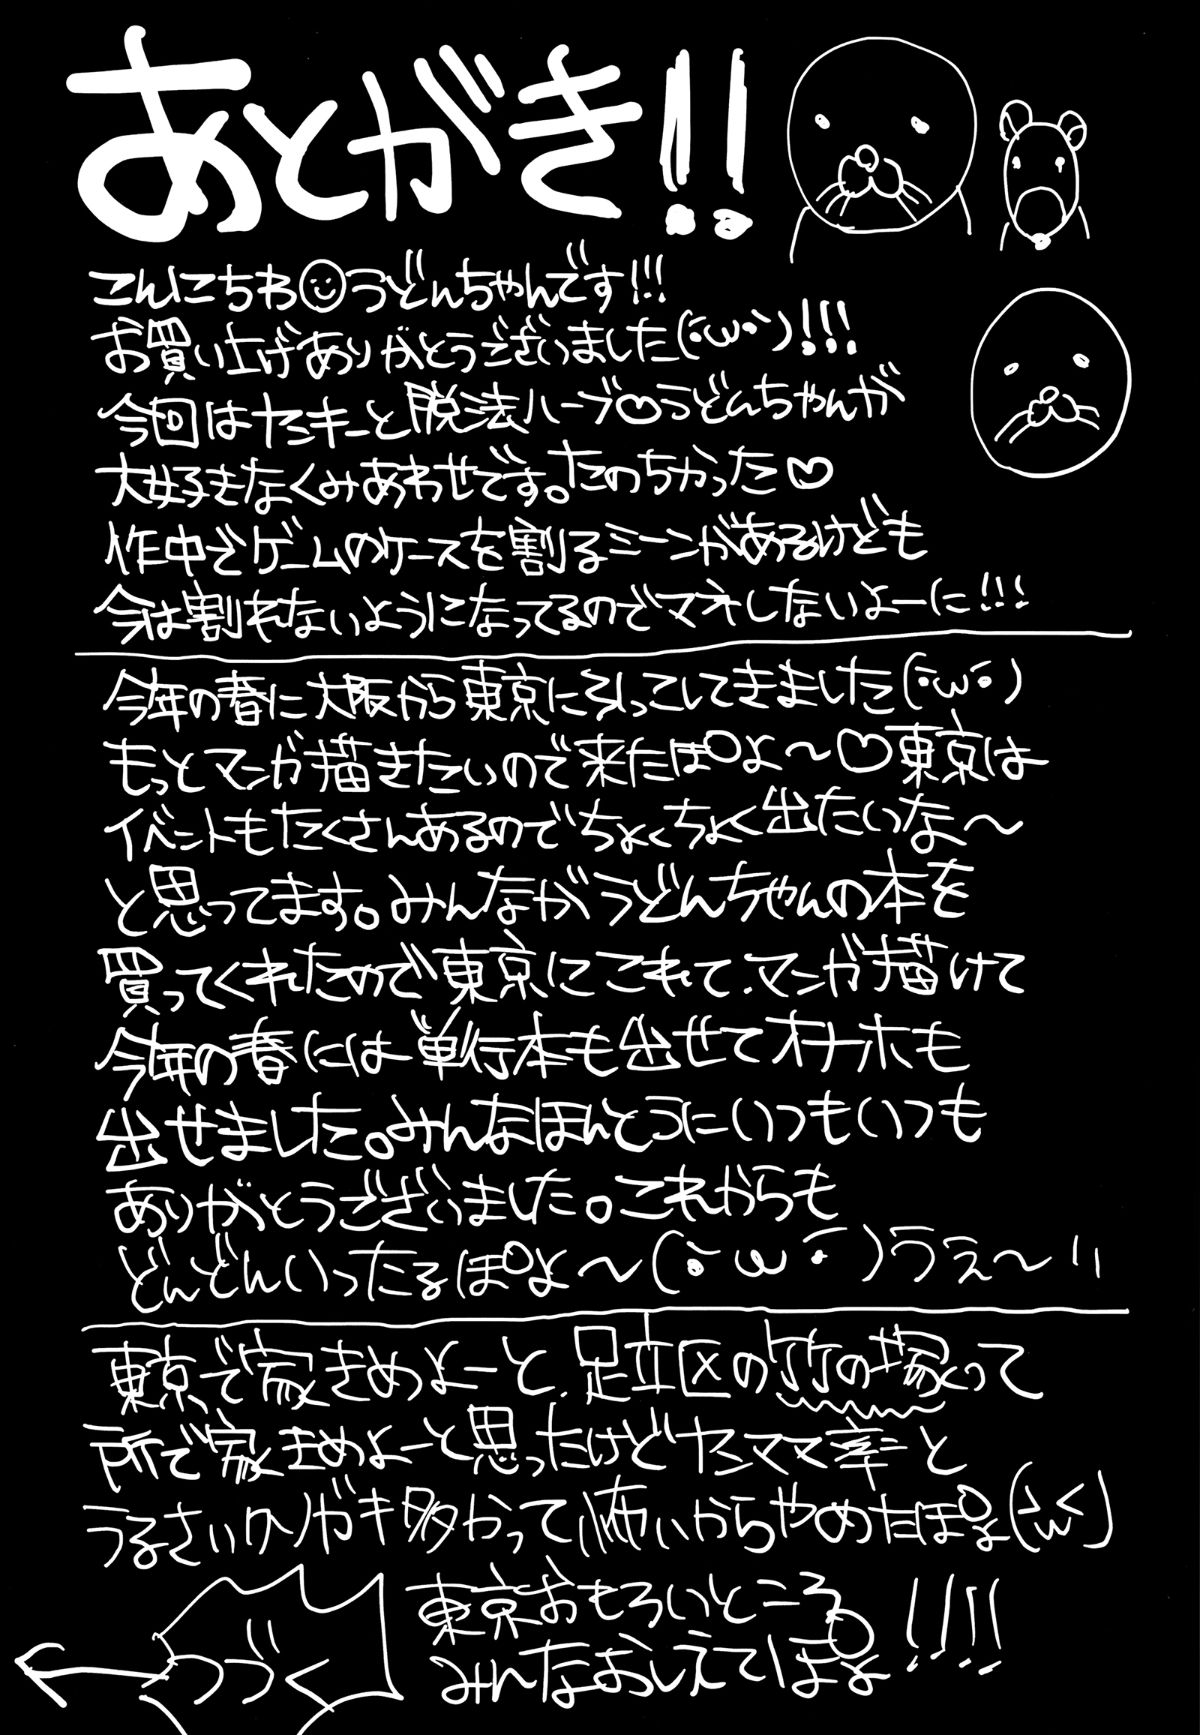 あとがき!!
こんにちわ うどんちゃんです!!!
お買い上げありがとうございました(・ω・`)!!!
今回はヤンキーと脱法ハーブ♡うどんちゃんが
大好きなくみあわせです。たのちかった♡
作中でゲームのケースを割るシーンがあるけども
今は割れないようになってるのでマネしないよーに!!!
今年の春に大阪から東京に引っこしてきました(・ω・)
もっとマンガ描きたいので来たぽよ〜♡東京は
イベントもたくさんあるのでちょくちょく出たいな〜
と思ってます。みんながうどんちゃんの本を
買ってくれたので東京にこれて、マンガ描けて
今年の春には単行本も出せてオナホも
出せました。みんなほんとうにいつもいつも
ありがとうございました。これからも
どんどんいったるぽよ〜(・ω・)うぇ〜!!
東京で家きめよーと、足立区の竹の塚って
所で家きめよーと思ったけどヤンママ率と
うるさいクソガキ多かって怖いからやめたぽよ
東京おもろいところ
みんなおしえてぽよ!!!!
つづく